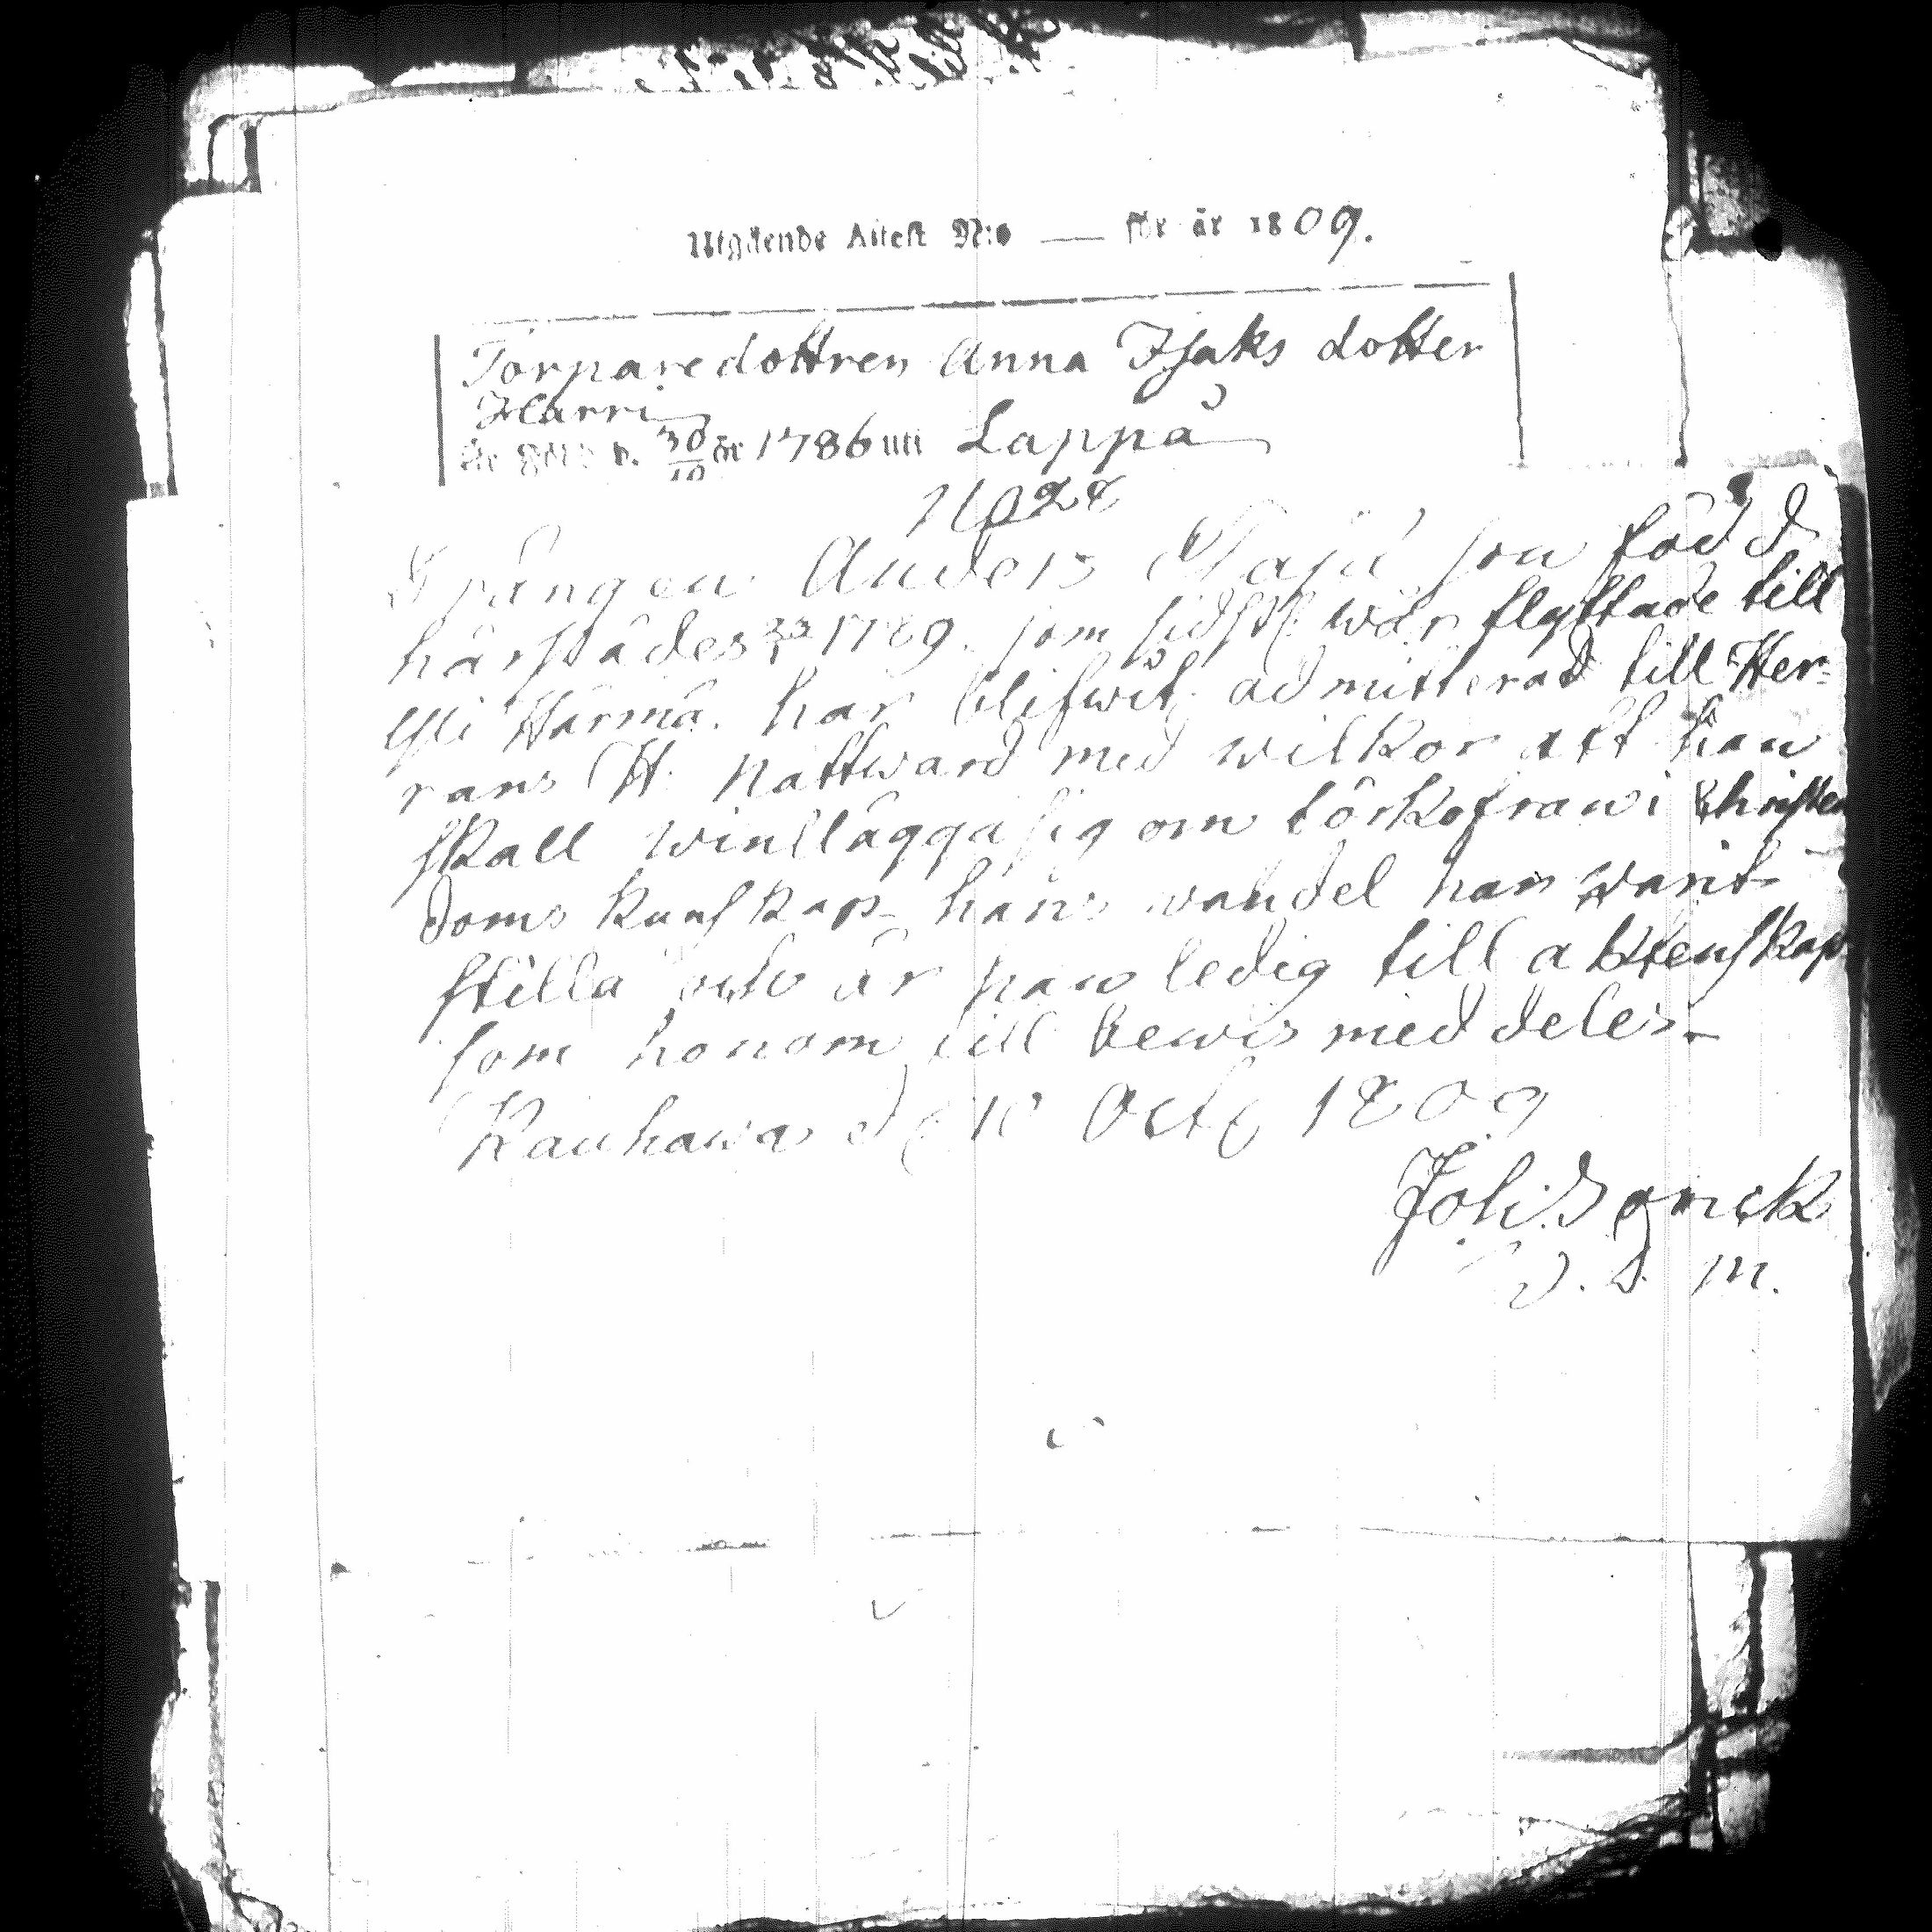 Utgående Attest N:o — för år 1809.
Torparedottren Anna Isaks dotter
Harri
är född d. 30/10 år 1786 uti Lappå
No 28
Drängen Anders son född
härstädes 1789. som sidst war flyttade till
Härmä. har blifwit admitterad till Her-
rans H. nattward med wilkor att han
skall winlägga sig om förkofran i Christen
doms kunskap hans wandel har warit
stilla och är han ledig till aktenskap
som honom till bewis meddeles.
Kauhawa d. 10 Oct. 1809
Joh.
V. D. M.